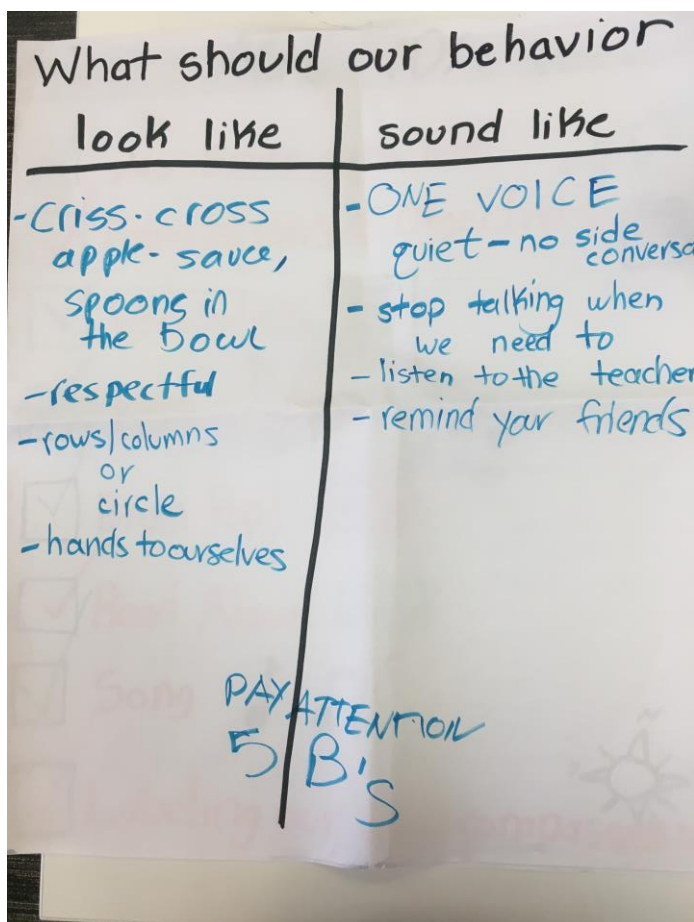 What should our behavior
look like
-criss-cross
apple-sauce,
spoons in
the bowl
-respectful
-rows/columns
or
circle
-hands to ourselves
sound like
-ONE VOICE
quiet - no side
conversa
- stop talking when
we need to
- listen to the teacher
- remind your friends
PAY ATTENTION
5 B's
Song